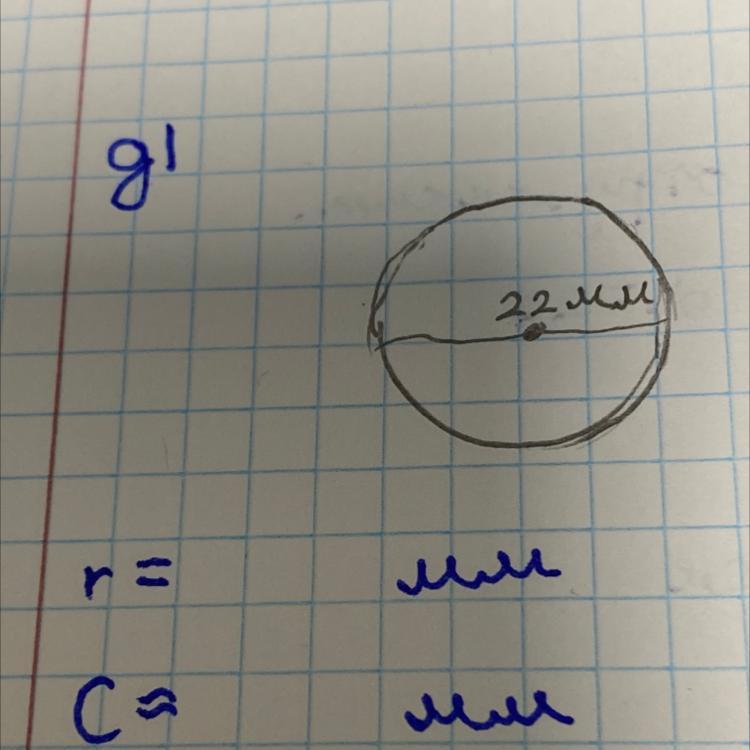 g1
22 мм
r = мм
C ≈ мм